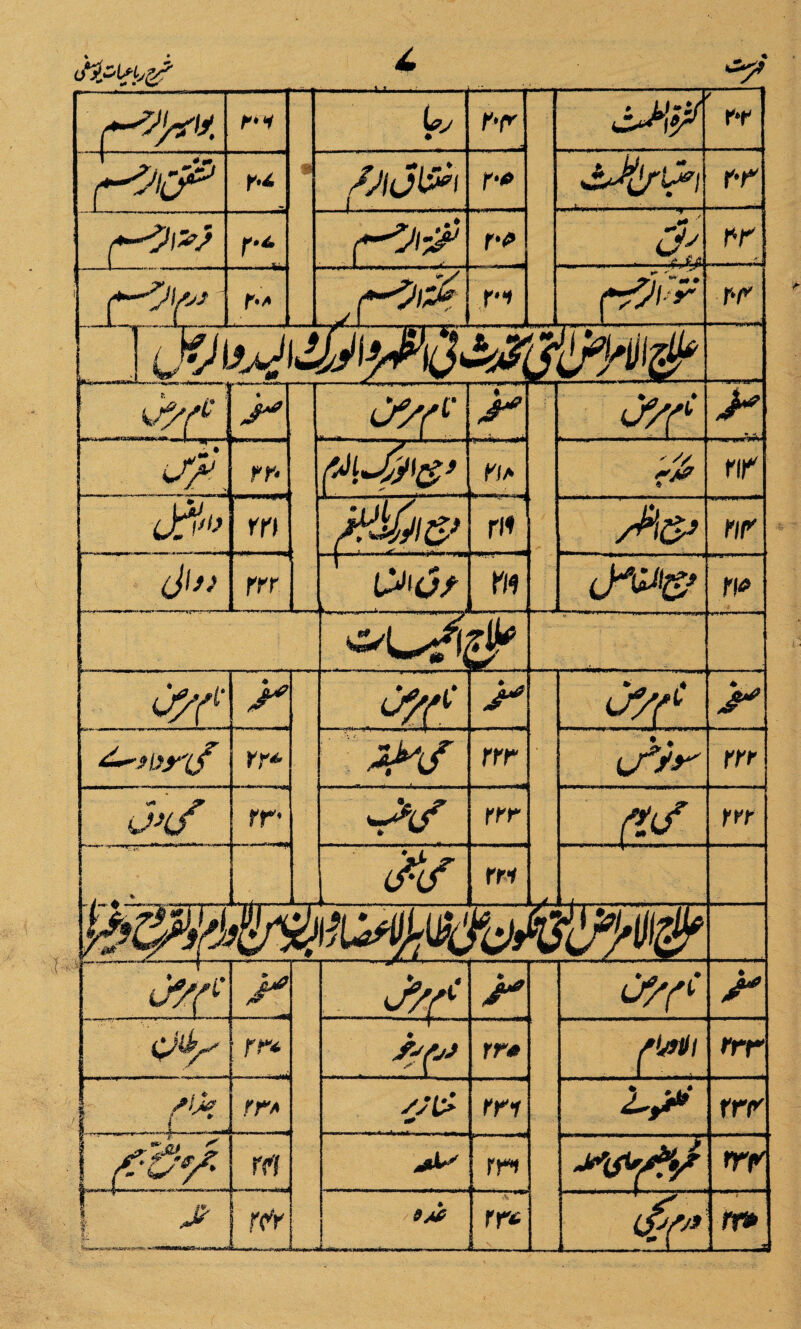 فہرست ۷ شرح رباعیات یوسفی
۲۰۲ کثرۃ الطمث ۲۰۴ رجا ۲۰۶ بواسیر الرحم
۲۰۳ احتباس الطمث ۲۰۵ اختناق الرحم ۲۰۷ شقاق الرحم
۲۰۳ رتق ۲۰۵ نفخۃ الرحم ۲۰۷ قرحۃ الرحم
۲۰۴ نتوّ الرحم ۲۰۶ حکۃ الرحم ۲۰۸ ورم الرحم
علاج الامراض التی تحدث فی الظہر والورک والید والرجل
صفحہ نام مرض صفحہ نام مرض صفحہ نام مرض
۲۱۳ حدبہ ۲۱۸ وجع الورک بالدم ۲۲۰ نقرس
۲۱۴ وجع الظہر ۲۱۹ وجع الورک بالبلغم ۲۲۱ داء الفیل
۲۱۵ وجع المفاصل ۲۱۹ عرق النسا ۲۲۲ دوالی
علاج الحمیات
صفحہ نام مرض صفحہ نام مرض صفحہ نام مرض
۲۲۲ سونوخس ۲۲۳ حمی مطبقہ ۲۲۷ حمی سوداوے
۲۲۲ حمی یوم ۲۲۳ حمی غب ۲۳۰ حمی دق
۲۲۶ حمی بلغمی
علاج الامراض التی تکون علی ظاہر الاعضاء والبدن من الاورام والقروح وغیرہا
صفحہ نام مرض صفحہ نام مرض صفحہ نام مرض
۲۳۳ الاورام ۲۳۵ ورم رخو ۲۳۷ سرطان
۲۳۴ فلغمونے ۲۳۶ خنازیر ۲۳۸ جذام
۲۳۴ حمرہ بضم حای مہملہ ۲۳۶ سلعہ ۲۴۱ جمرہ بفتح جیم
۲۳۵ ورم ریحی ۲۳۷ غدہ ۲۴۲ نملہ